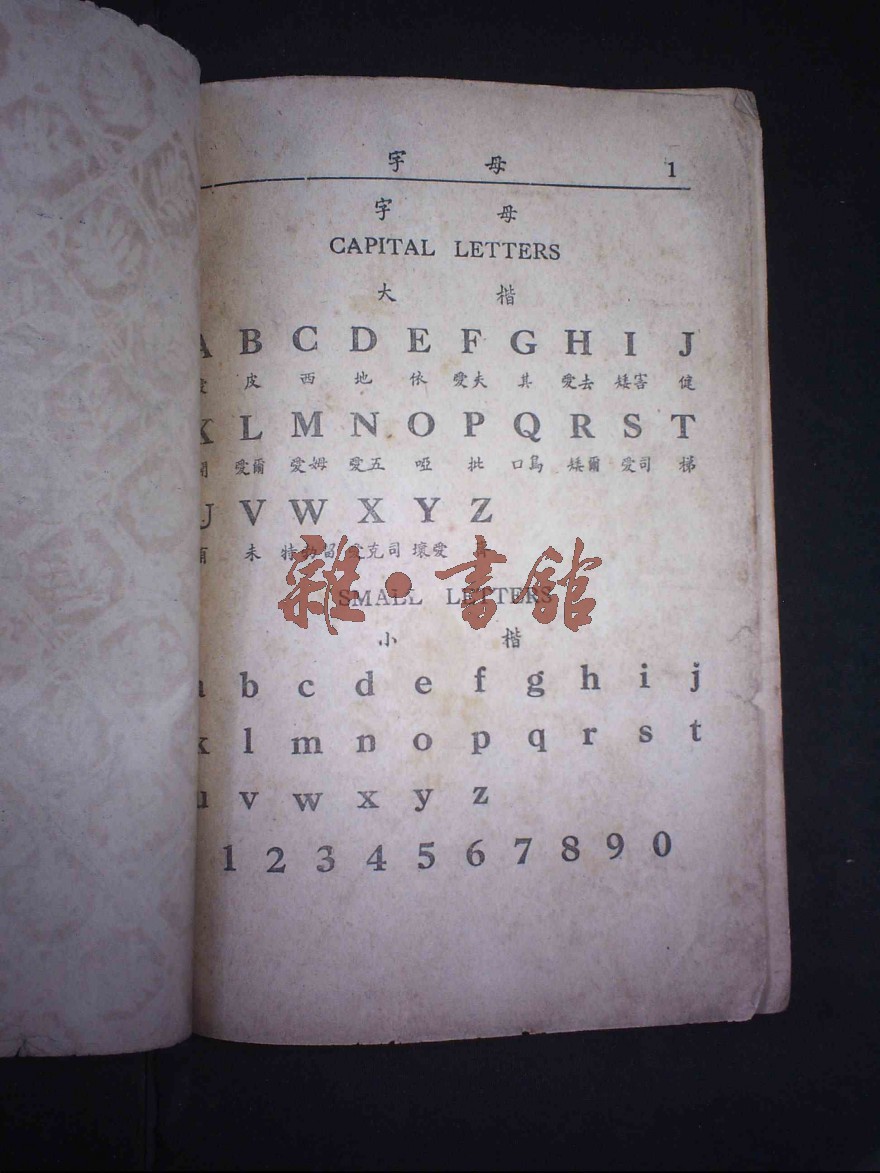 字 母 1
字 母
CAPITAL LETTERS
大 楷
A B C D E F G H I J
皮 西 地 依 愛夫 其 愛去 矮害 健
K L M N O P Q R S T
愛爾 愛姆 愛五 啞 批 口烏 矮爾 愛司 梯
U V W X Y Z
未 愛克司 壞愛
雜·書館
SMALL LETTERS
小 楷
a b c d e f g h i j
k l m n o p q r s t
u v w x y z
1 2 3 4 5 6 7 8 9 0